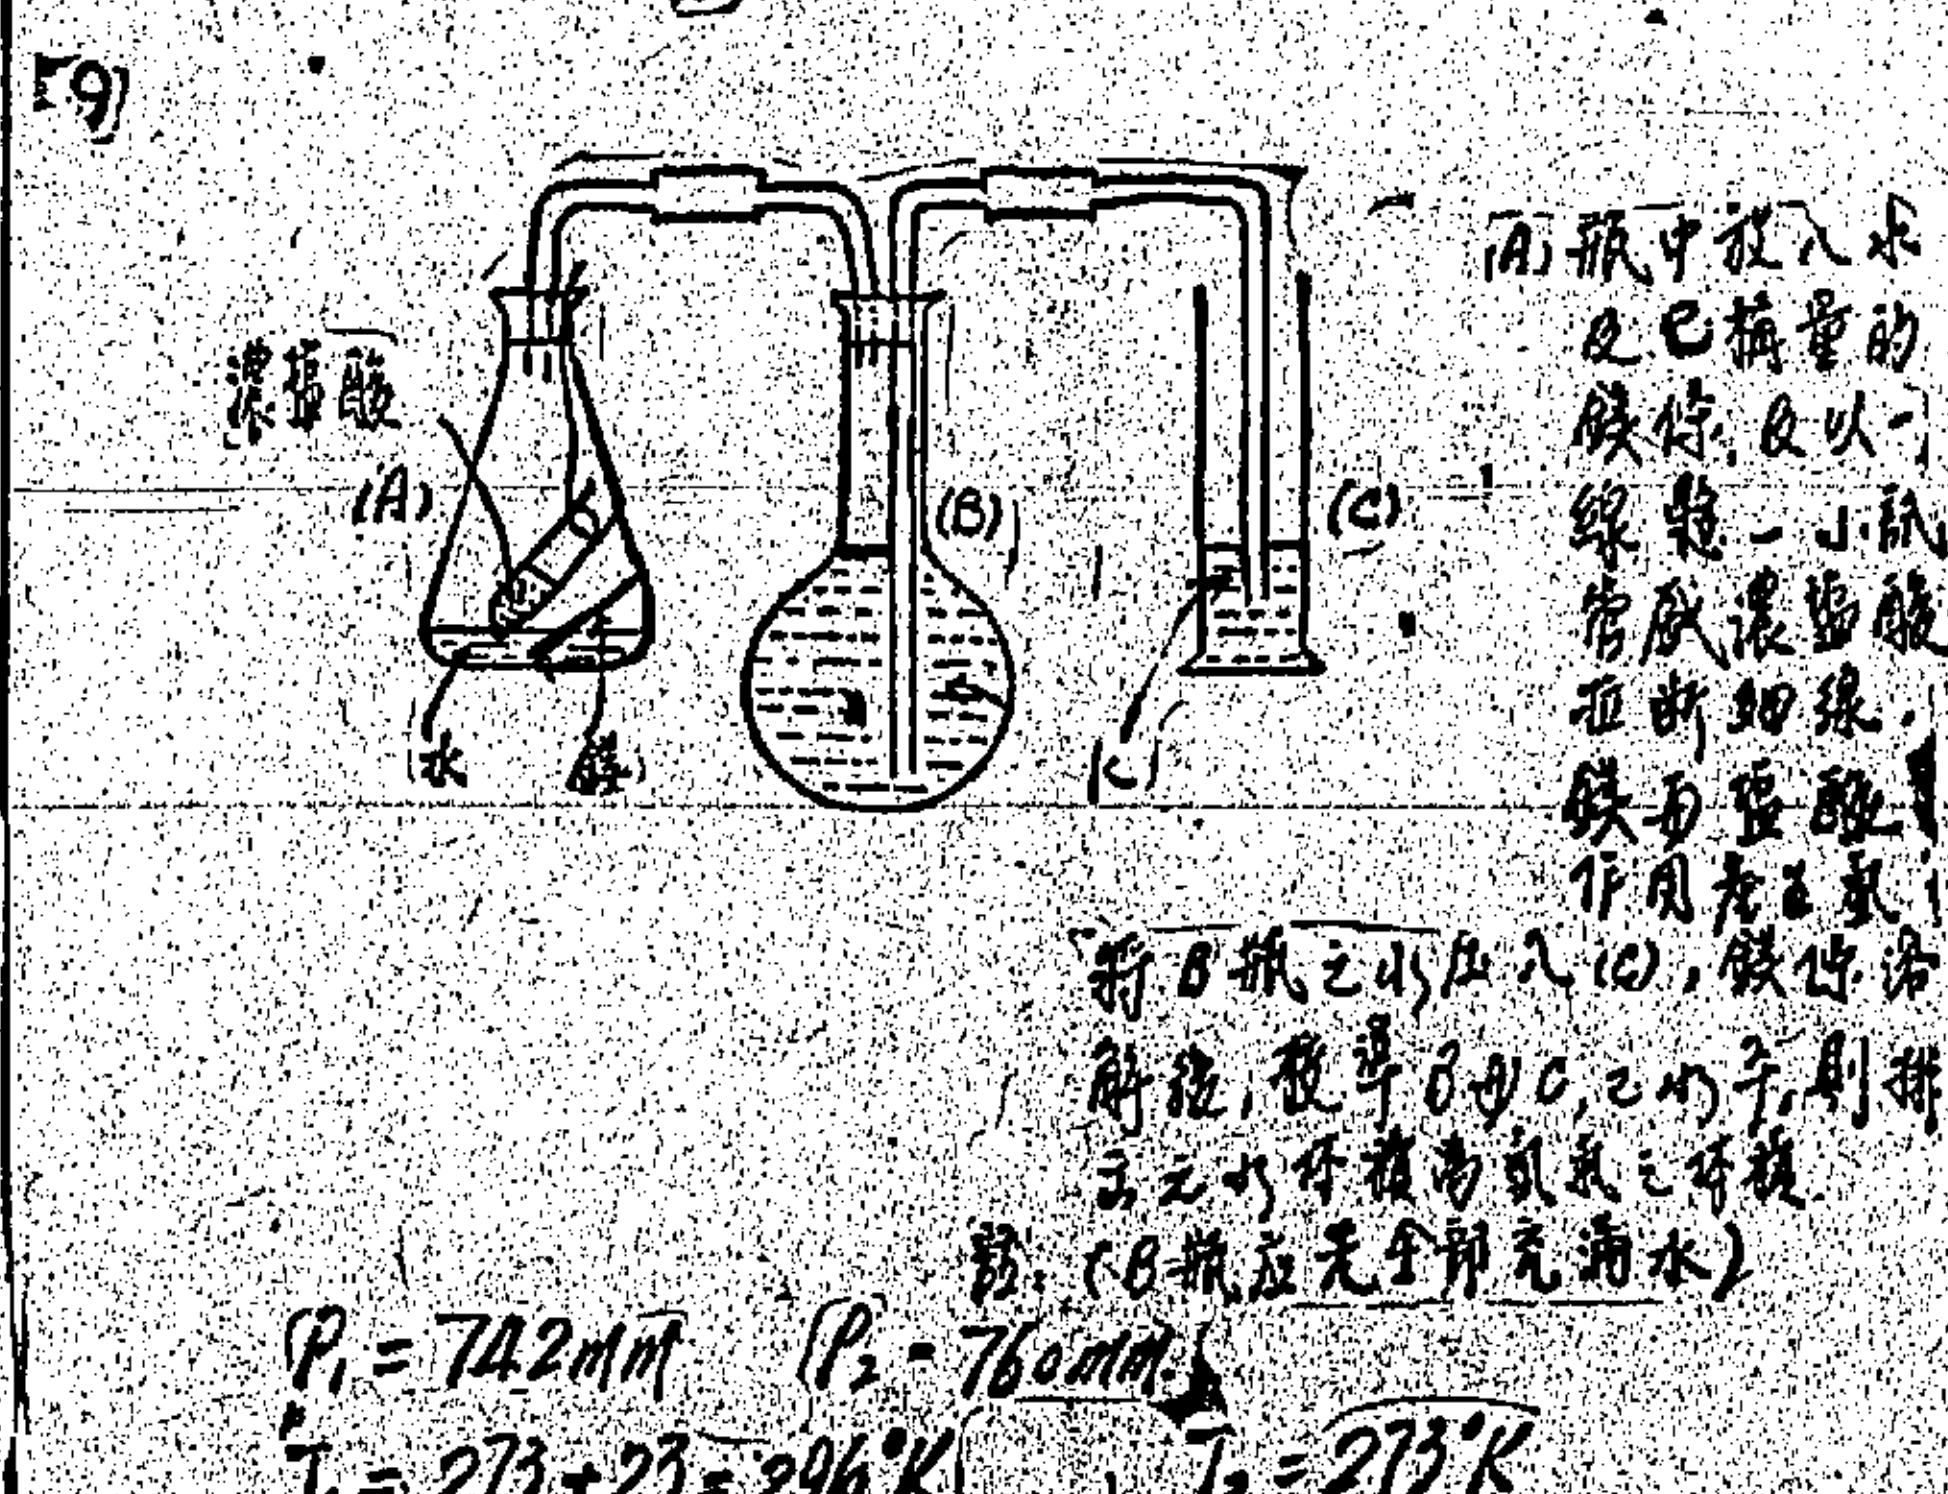 [9]
濃塩酸
(A)
(B)
(C)
水
鎂
(A) 瓶中放入水
及已稱量的
鎂條,及以一
線懸一小試
管盛濃塩酸
拉断細線.
鎂与塩酸
作用產生氫
將B瓶之水压入(C),鎂條溶
解後,校準B与C之水平,則排
出之水体積為氫氣之体積.
註:(B瓶应先全部充滿水)
P₁ = 742mm P₂ = 760mm
T₁ = 273+23=296°K T₂ = 273°K